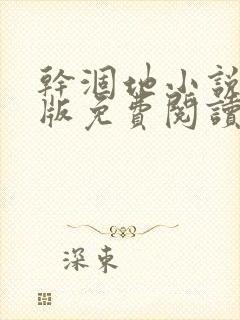 幹涸地小說
版免費閱讀
深東